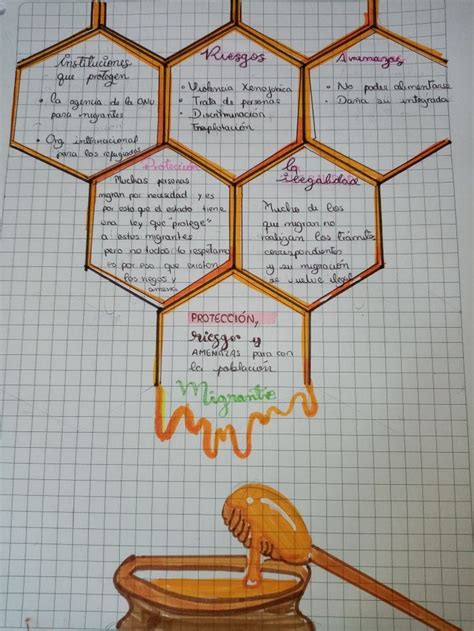 Instituciones
que protegen
• la agencia de la ONU
para migrantes
• Org. internacional
para los refugiados
Riesgos
• Violencia Xenofonica
• Trata de personas
• Discriminación
Amenazas
• No poder alimentarse
• Daña su integridad
Protección
Muchas personas
migran por necesidad y es
por esto que el estado tiene
una ley que "protege"
a estos migrantes
pero no todos la respetan
es por eso que existen
los riegos y
amenaz
la
ilegalidad
Mucho de los
que migran no
realizan los trámites
correspondientes
y su migración
se vuelve ilegal
PROTECCIÓN,
riesgos y
AMENAZAS para con
la población
Migrante